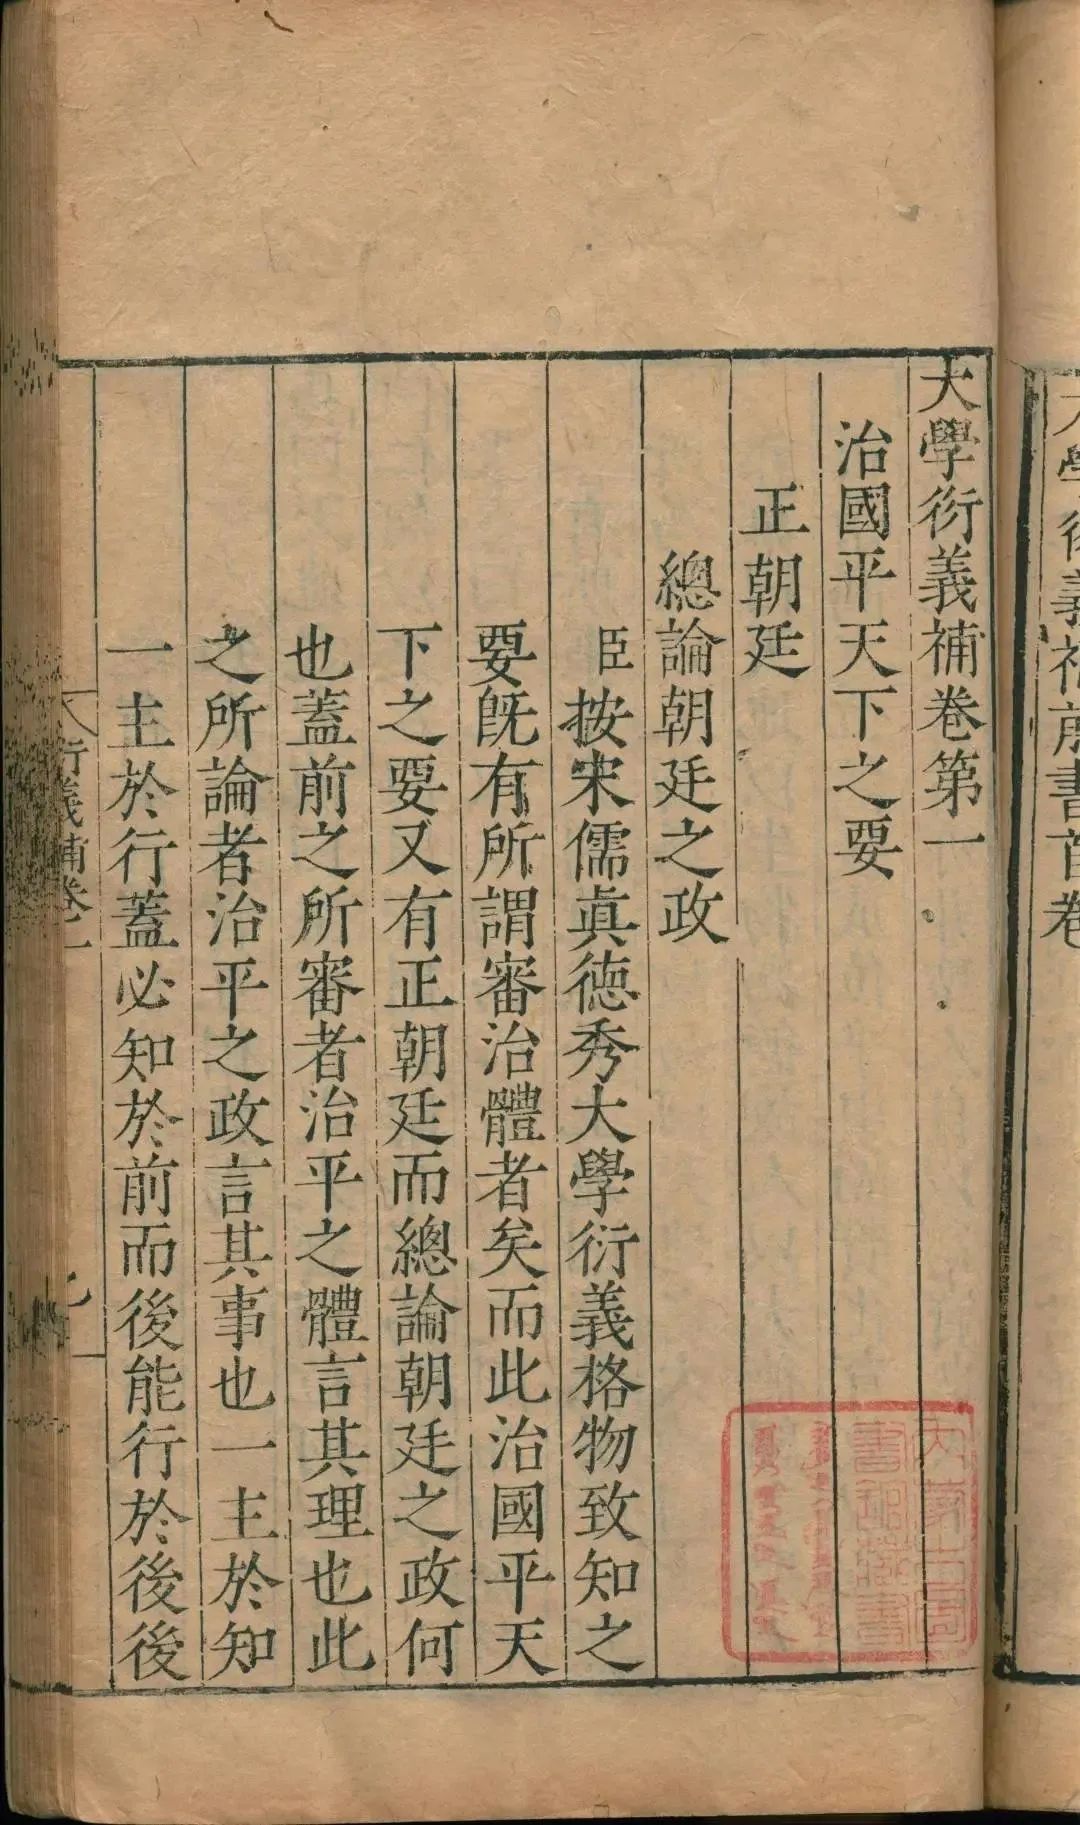 大學衍義補卷第一
治國平天下之要
正朝廷
總論朝廷之政
臣按宋儒眞德秀大學衍義格物致知之
要旣有所謂審治體者矣而此治國平天
下之要又有正朝廷而總論朝廷之政何
也蓋前之所審者治平之體言其理也此
之所論者治平之政言其事也一主於知
一主於行蓋必知於前而後能行於後後
衍義補卷一
內蒙古圖
書館藏書